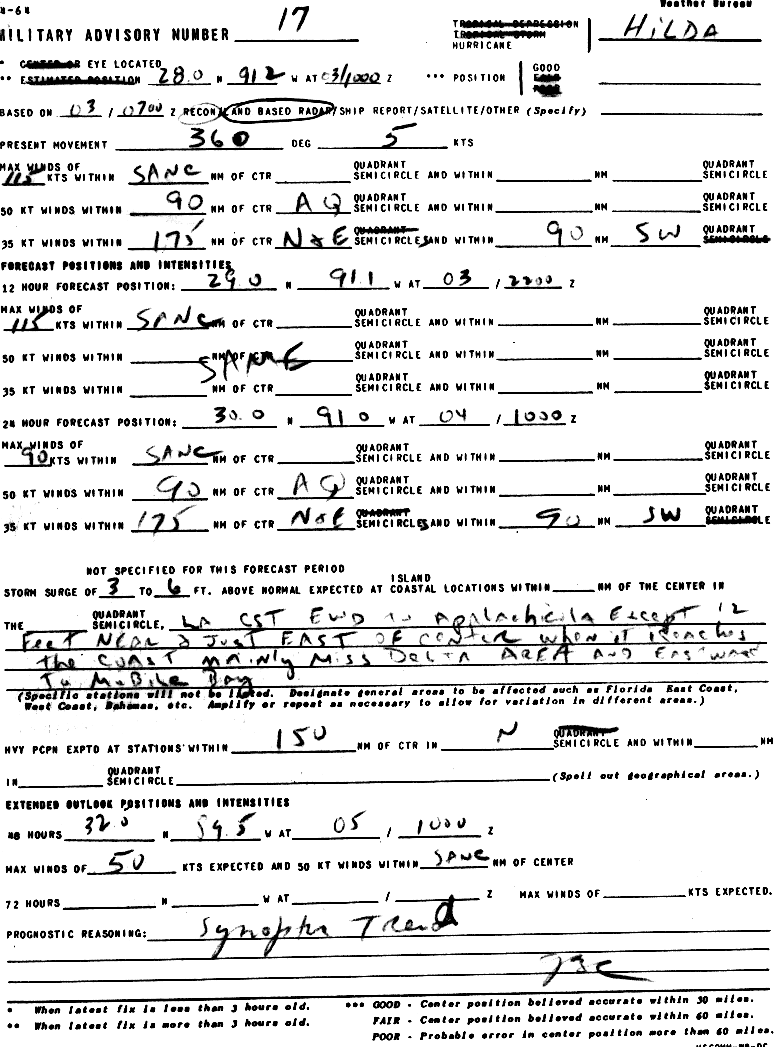 Weather Bureau
MILITARY ADVISORY NUMBER 17 TROPICAL DEPRESSION HILDA
TROPICAL STORM
HURRICANE
* CENTER OR EYE LOCATED
** ESTIMATED POSITION 28.0 N 91.2 W AT 03/1000 Z *** POSITION GOOD
FAIR
POOR
BASED ON 03 / 0700 Z RECON/LAND BASED RADAR/SHIP REPORT/SATELLITE/OTHER (Specify)
PRESENT MOVEMENT 360 DEG 5 KTS
MAX WINDS OF QUADRANT QUADRANT
115 KTS WITHIN SANC NM OF CTR SEMICIRCLE AND WITHIN NM SEMICIRCLE
QUADRANT QUADRANT
50 KT WINDS WITHIN 90 NM OF CTR AQ SEMICIRCLE AND WITHIN NM SEMICIRCLE
QUADRANT QUADRANT
35 KT WINDS WITHIN 175 NM OF CTR N&E SEMICIRCLES AND WITHIN 90 NM SW SEMICIRCLE
FORECAST POSITIONS AND INTENSITIES
12 HOUR FORECAST POSITION: 29.0 N 91.1 W AT 03 / 2200 Z
MAX WINDS OF QUADRANT QUADRANT
115 KTS WITHIN SANC NM OF CTR SEMICIRCLE AND WITHIN NM SEMICIRCLE
QUADRANT QUADRANT
50 KT WINDS WITHIN NM OF CTR SEMICIRCLE AND WITHIN NM SEMICIRCLE
SAME
QUADRANT QUADRANT
35 KT WINDS WITHIN NM OF CTR SEMICIRCLE AND WITHIN NM SEMICIRCLE
24 HOUR FORECAST POSITION: 30.0 N 91.0 W AT 04 / 1000 Z
MAX WINDS OF QUADRANT QUADRANT
90 KTS WITHIN SANC NM OF CTR SEMICIRCLE AND WITHIN NM SEMICIRCLE
QUADRANT QUADRANT
50 KT WINDS WITHIN 90 NM OF CTR AQ SEMICIRCLE AND WITHIN NM SEMICIRCLE
QUADRANT QUADRANT
35 KT WINDS WITHIN 175 NM OF CTR N&E SEMICIRCLES AND WITHIN 90 NM SW SEMICIRCLE
NOT SPECIFIED FOR THIS FORECAST PERIOD
ISLAND
STORM SURGE OF 3 TO 6 FT. ABOVE NORMAL EXPECTED AT COASTAL LOCATIONS WITHIN NM OF THE CENTER IN
QUADRANT
THE SEMICIRCLE, LA CST EWD to Applachicola Except 12
Feet NEAR & Just EAST OF center when it Reaches
the COAST mainly Miss Delta AREA AND Eastward
To MoBile Bay
(Specific stations will not be listed. Designate general areas to be affected such as Florida East Coast,
West Coast, Bahamas, etc. Amplify or repeat as necessary to allow for variation in different areas.)
QUADRANT
HVY PCPN EXPTD AT STATIONS WITHIN 150 NM OF CTR IN N SEMICIRCLE AND WITHIN NM
QUADRANT
IN SEMICIRCLE (Spell out geographical areas.)
EXTENDED OUTLOOK POSITIONS AND INTENSITIES
48 HOURS 32.0 N 89.5 W AT 05 / 1000 Z
MAX WINDS OF 50 KTS EXPECTED AND 50 KT WINDS WITHIN SANC NM OF CENTER
72 HOURS N W AT / Z MAX WINDS OF KTS EXPECTED.
PROGNOSTIC REASONING: Synoptic Trend
* When latest fix is less than 3 hours old. *** GOOD - Center position believed accurate within 30 miles.
** When latest fix is more than 3 hours old. FAIR - Center position believed accurate within 60 miles.
POOR - Probable error in center position more than 60 miles.